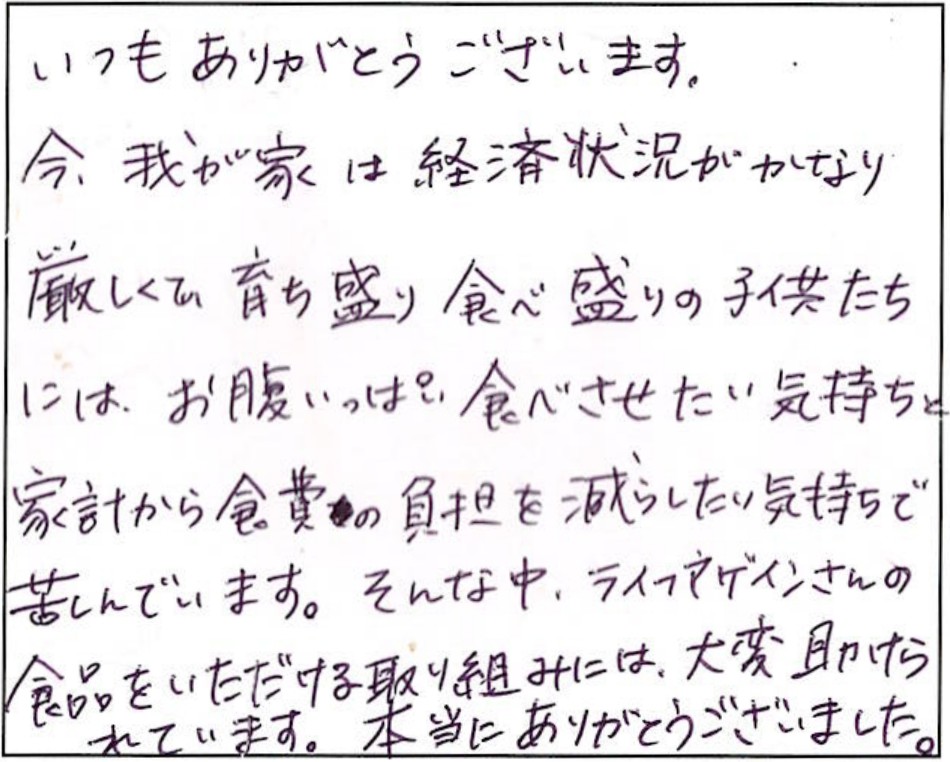 いつもありがとうございます。
今、我が家は経済状況がかなり
厳しくて、育ち盛り食べ盛りの子供たち
には、お腹いっぱい食べさせたい気持ちと
家計から食費の負担を減らしたい気持ちで
苦しんでいます。そんな中、ライフアゲインさんの
食品をいただける取り組みには、大変助けら
れています。本当にありがとうございました。